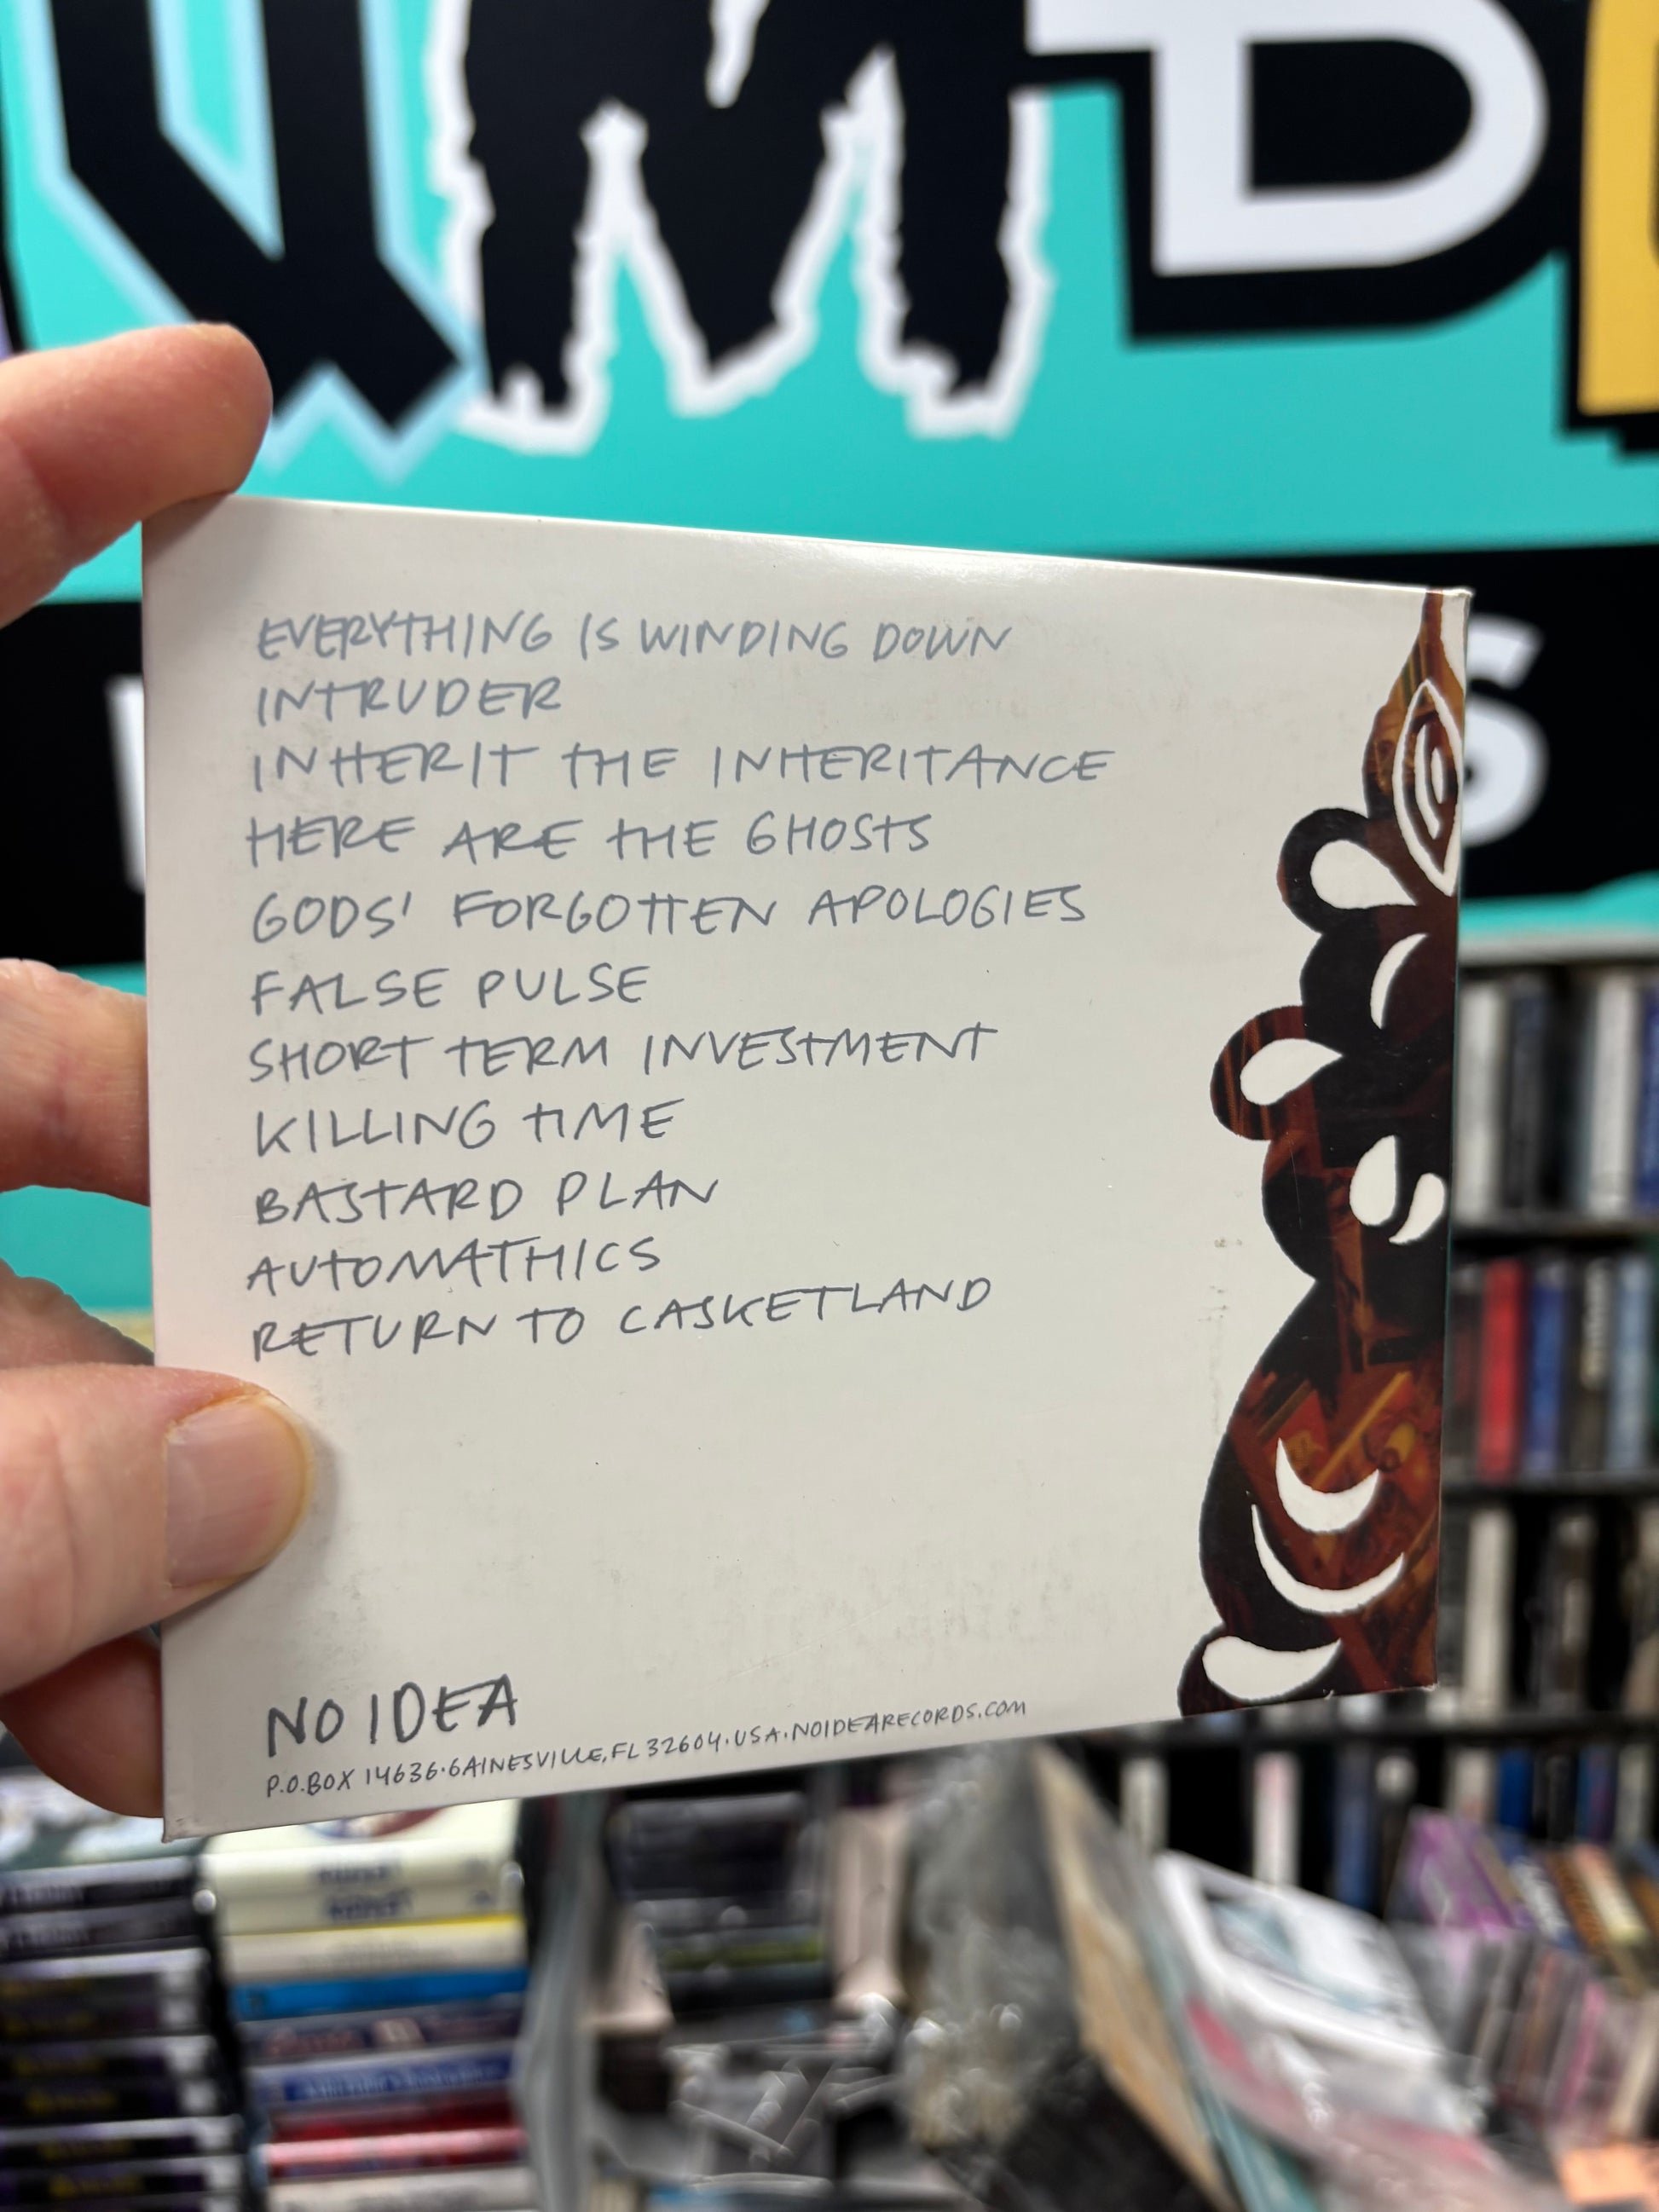 EVERYTHING IS WINDING DOWN
INTRUDER
INHERIT THE INHERITANCE
HERE ARE THE GHOSTS
GODS' FORGOTTEN APOLOGIES
FALSE PULSE
SHORT TERM INVESTMENT
KILLING TIME
BASTARD PLAN
AUTOMATHICS
RETURN TO CASKETLAND
NO IDEA
P.O.BOX 14636·GAINESVILLE, FL 32604·USA·NOIDEARECORDS.COM